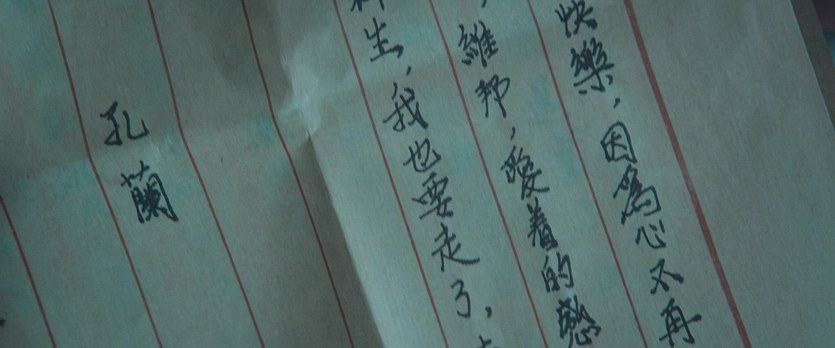 快樂，因為心不再
維邦，愛着的
生，我也要走了，
孔蘭